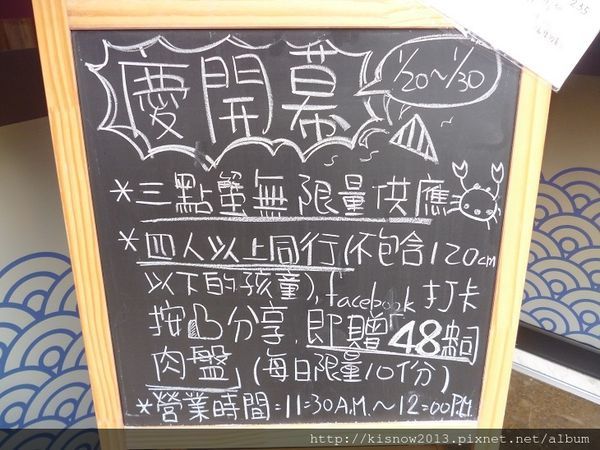 慶開幕
1/20~1/30
*三點蟹無限量供應
*四人以上同行(不包含120cm
以下的孩童),facebook打卡
按凸分享,即贈「48盎司
肉盤」(每日限量10份)
*營業時間:11:30A.M.~12:00P.M.
http://kisnow2013.pixnet.net/album